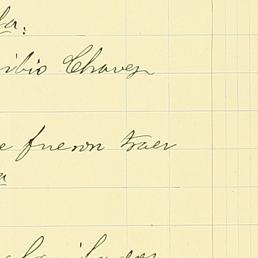 la:
ibio Chavez
e fueron traer
a